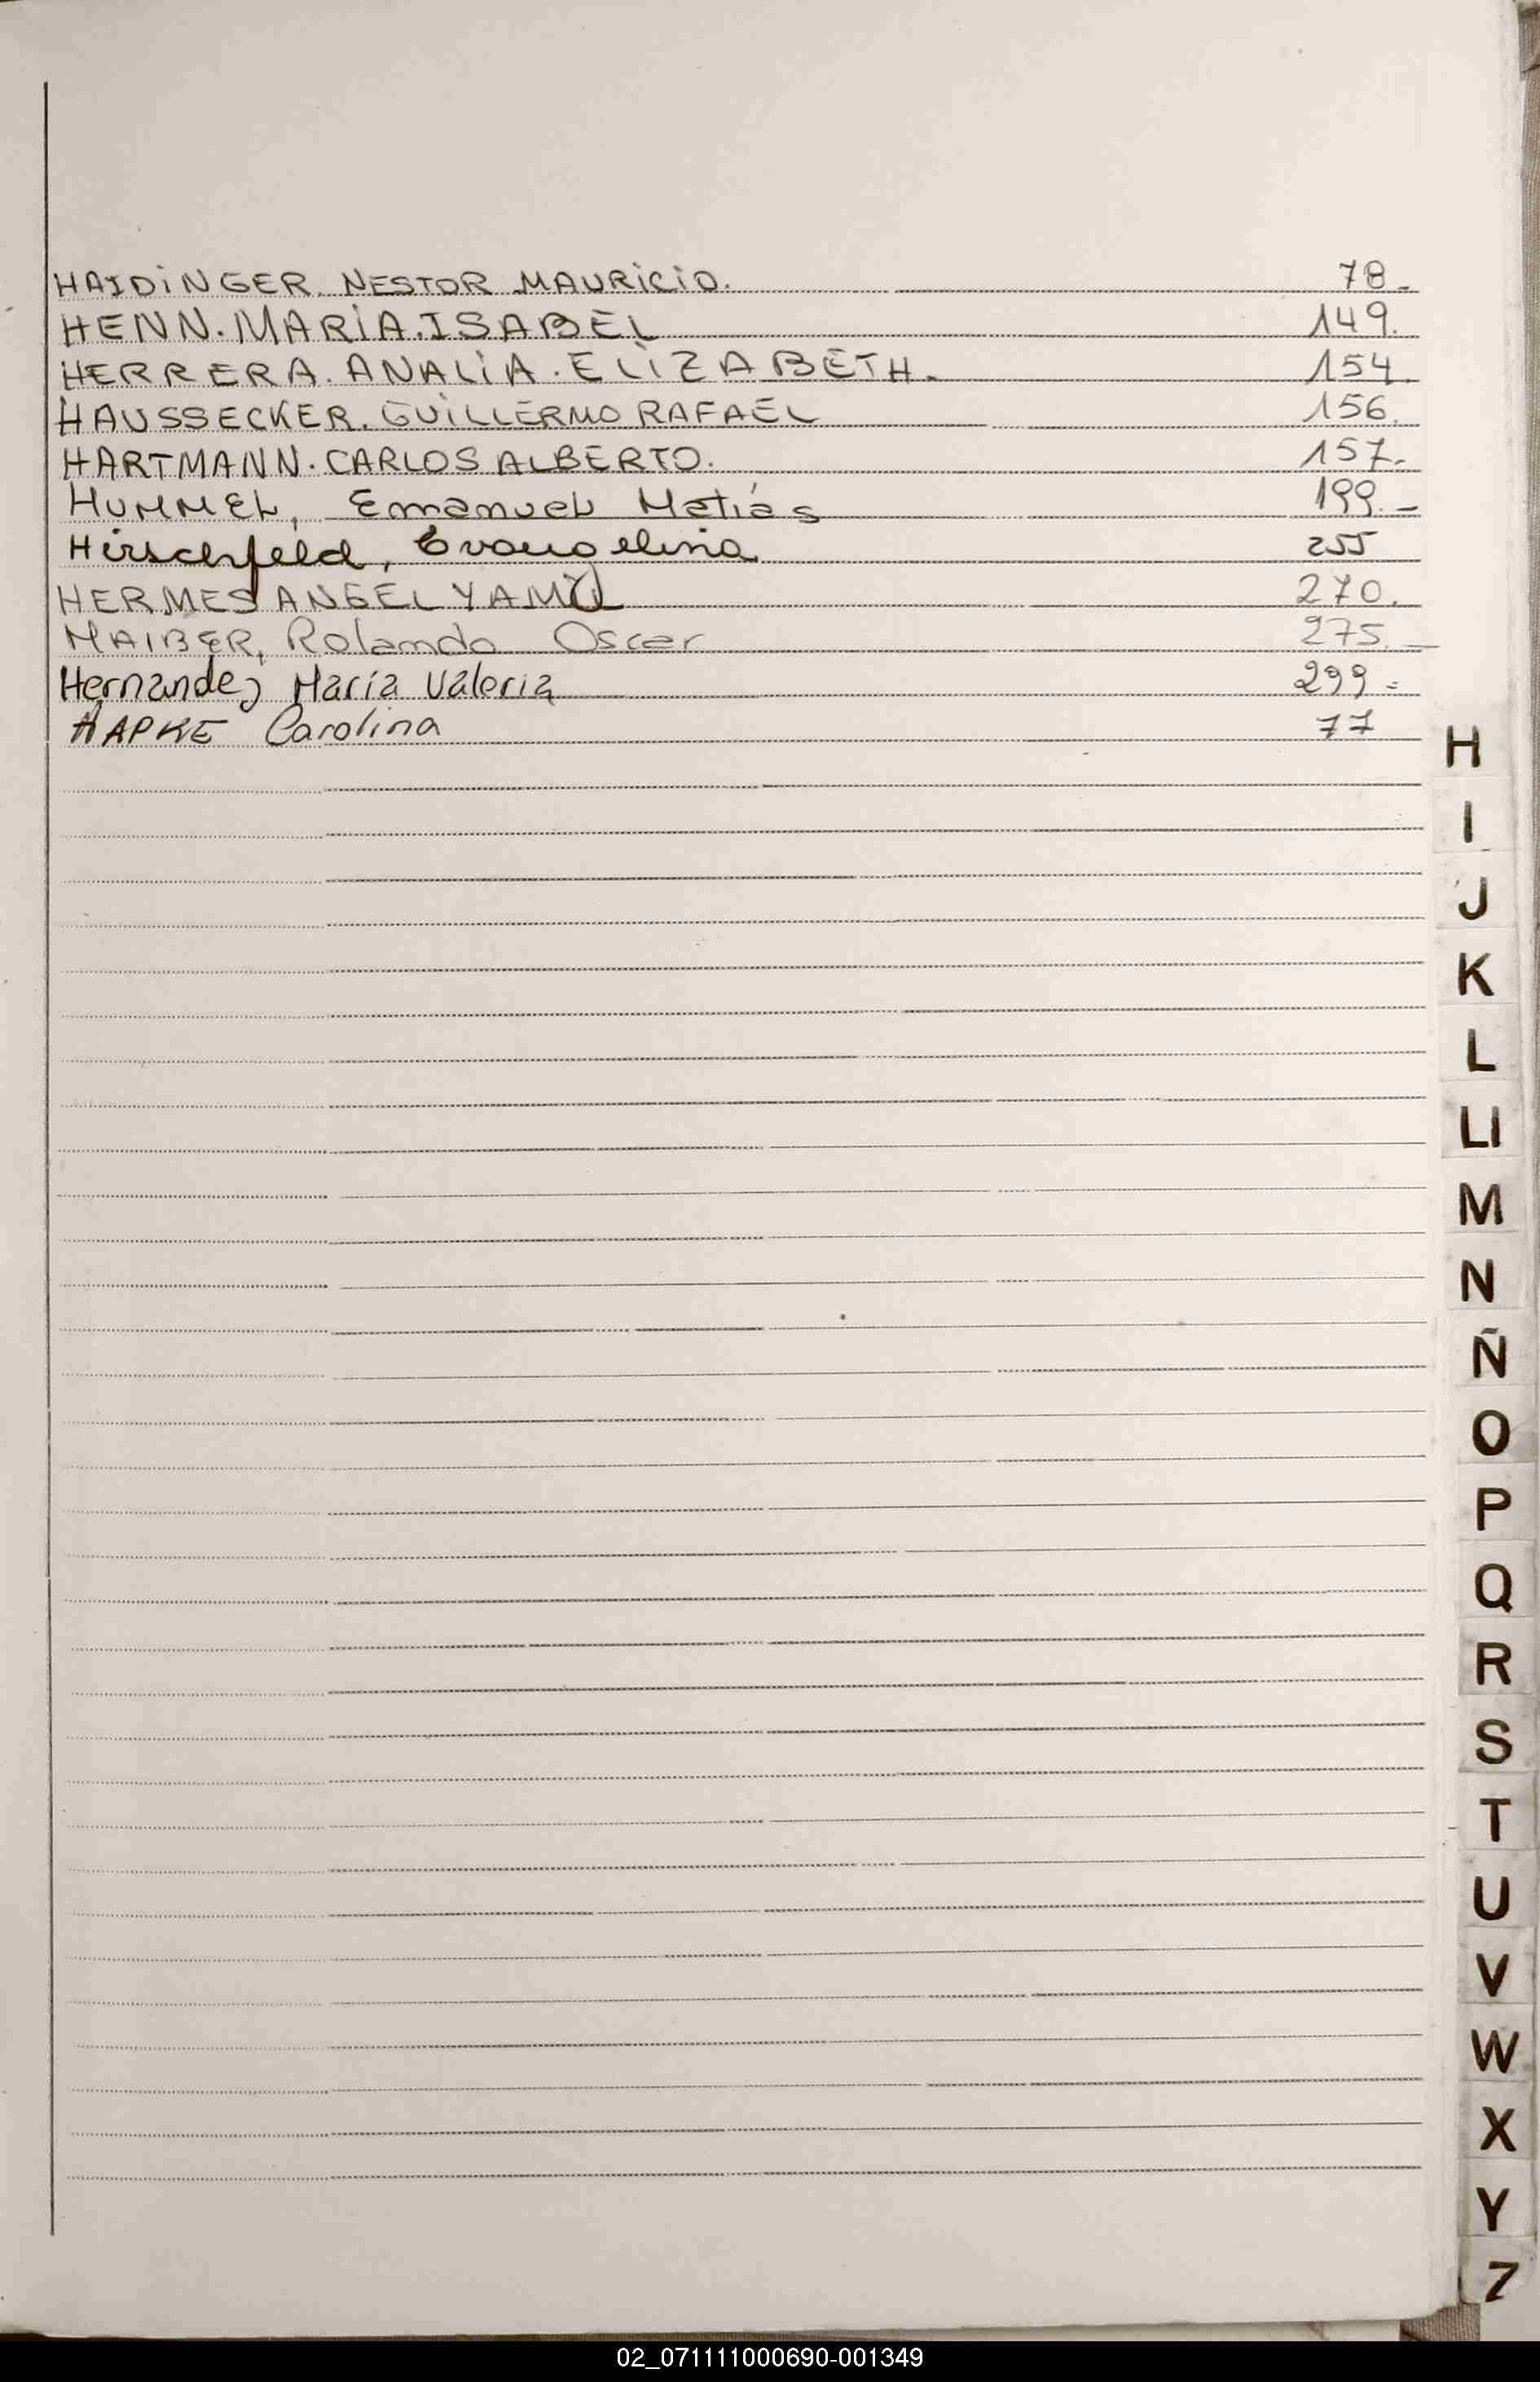 HAIDINGER. NESTOR MAURICIO. 78.-
HENN. MARIA. ISABEL 149.
HERRERA. ANALIA. ELIZABETH. 154.
HAUSSECKER. GUILLERMO RAFAEL 156.
HARTMANN. CARLOS ALBERTO. 157.-
HUMMEL, Emanuel Matías 199.-
Hirschfeld, Evangelina 255
HERMES ANGEL YAMIL 270.
HAIBER, Rolando Oscar 275.-
Hernandez María Valeria 299=
HAPKE Carolina 77
H
I
J
K
L
Ll
M
N
Ñ
O
P
Q
R
S
T
U
V
W
X
Y
Z
02_071111000690-001349